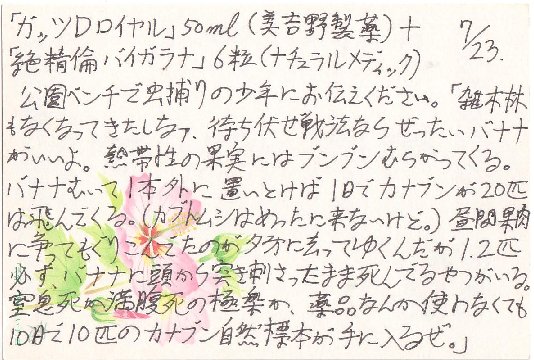 「ガッツDロイヤル」50ml(美吉野製薬)+ 7/23.
「絶精倫バイガラナ」6粒(ナチュラルメディック)
公園ベンチで虫捕りの少年にお伝えください。「雑木林
もなくなってきたしなァ、待ち伏せ戦法ならぜったいバナナ
がいいよ。熱帯性の果実にはブンブンむらがってくる。
バナナむいて1本外に置いとけば1日でカナブンが20匹
は飛んでくる。(カブトムシはめったに来ないけど。)昼間果肉
に争ってもぐりこんでたのが夕方に去ってゆくんだが1.2匹
必ずバナナに頭から突き刺さったまま死んでるやつがいる。
窒息死か満腹死の極楽か、薬品なんか使わなくても
10日で10匹のカナブン自然標本が手に入るぜ。」